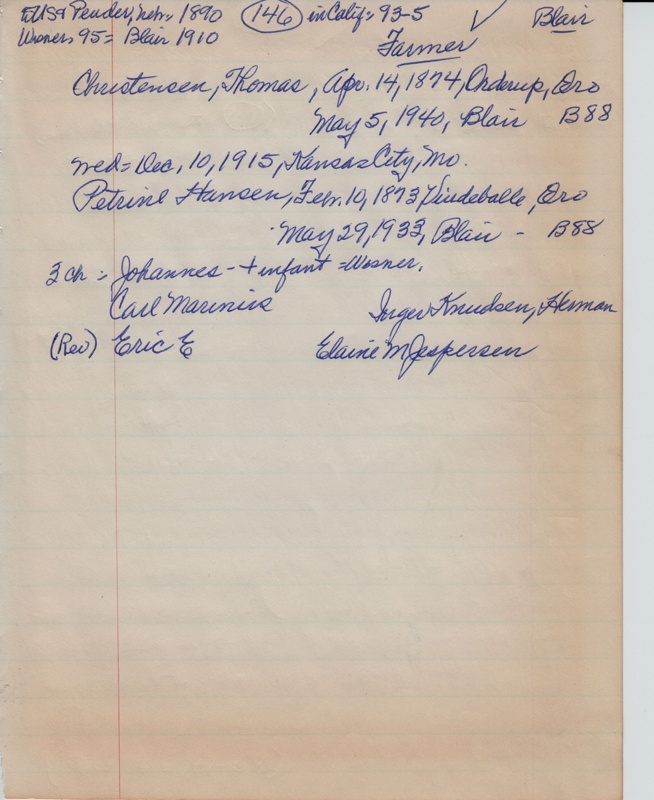 to USA Pender, Nebr = 1890 (146) in Calif = 93-5 ✓ Blair
Wisner 95 = Blair 1910
Farmer
Christensen, Thomas, Apr. 14, 1874, Orderup, Øro
May 5, 1940, Blair B88
wed = Dec. 10, 1915, Kansas City, Mo.
Petrine Hansen, Feb. 10, 1873, Vindeballe, Øro
May 29, 1933, Blair - B88
3 ch = Johannes - + infant = Wisner.
Carl Marinius Inger Knudsen, Herman
(Rev) Eric E Elaine M Jespersen